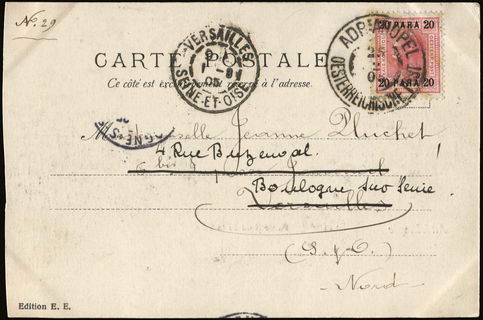 No. 29
CARTE POSTALE
Ce côté est exclusivement réservé à l'adresse.
VERSAILLES
SEINE-ET-OISE
ADRIANOPEL
OESTERREICHISCHE
20 PARA 20
20 PARA 20
Mademoiselle Jeanne Pluchet
4 Rue Buzenval
Boulogne sur Seine
Versailles
(S. & O.)
Nord
Edition E. E.